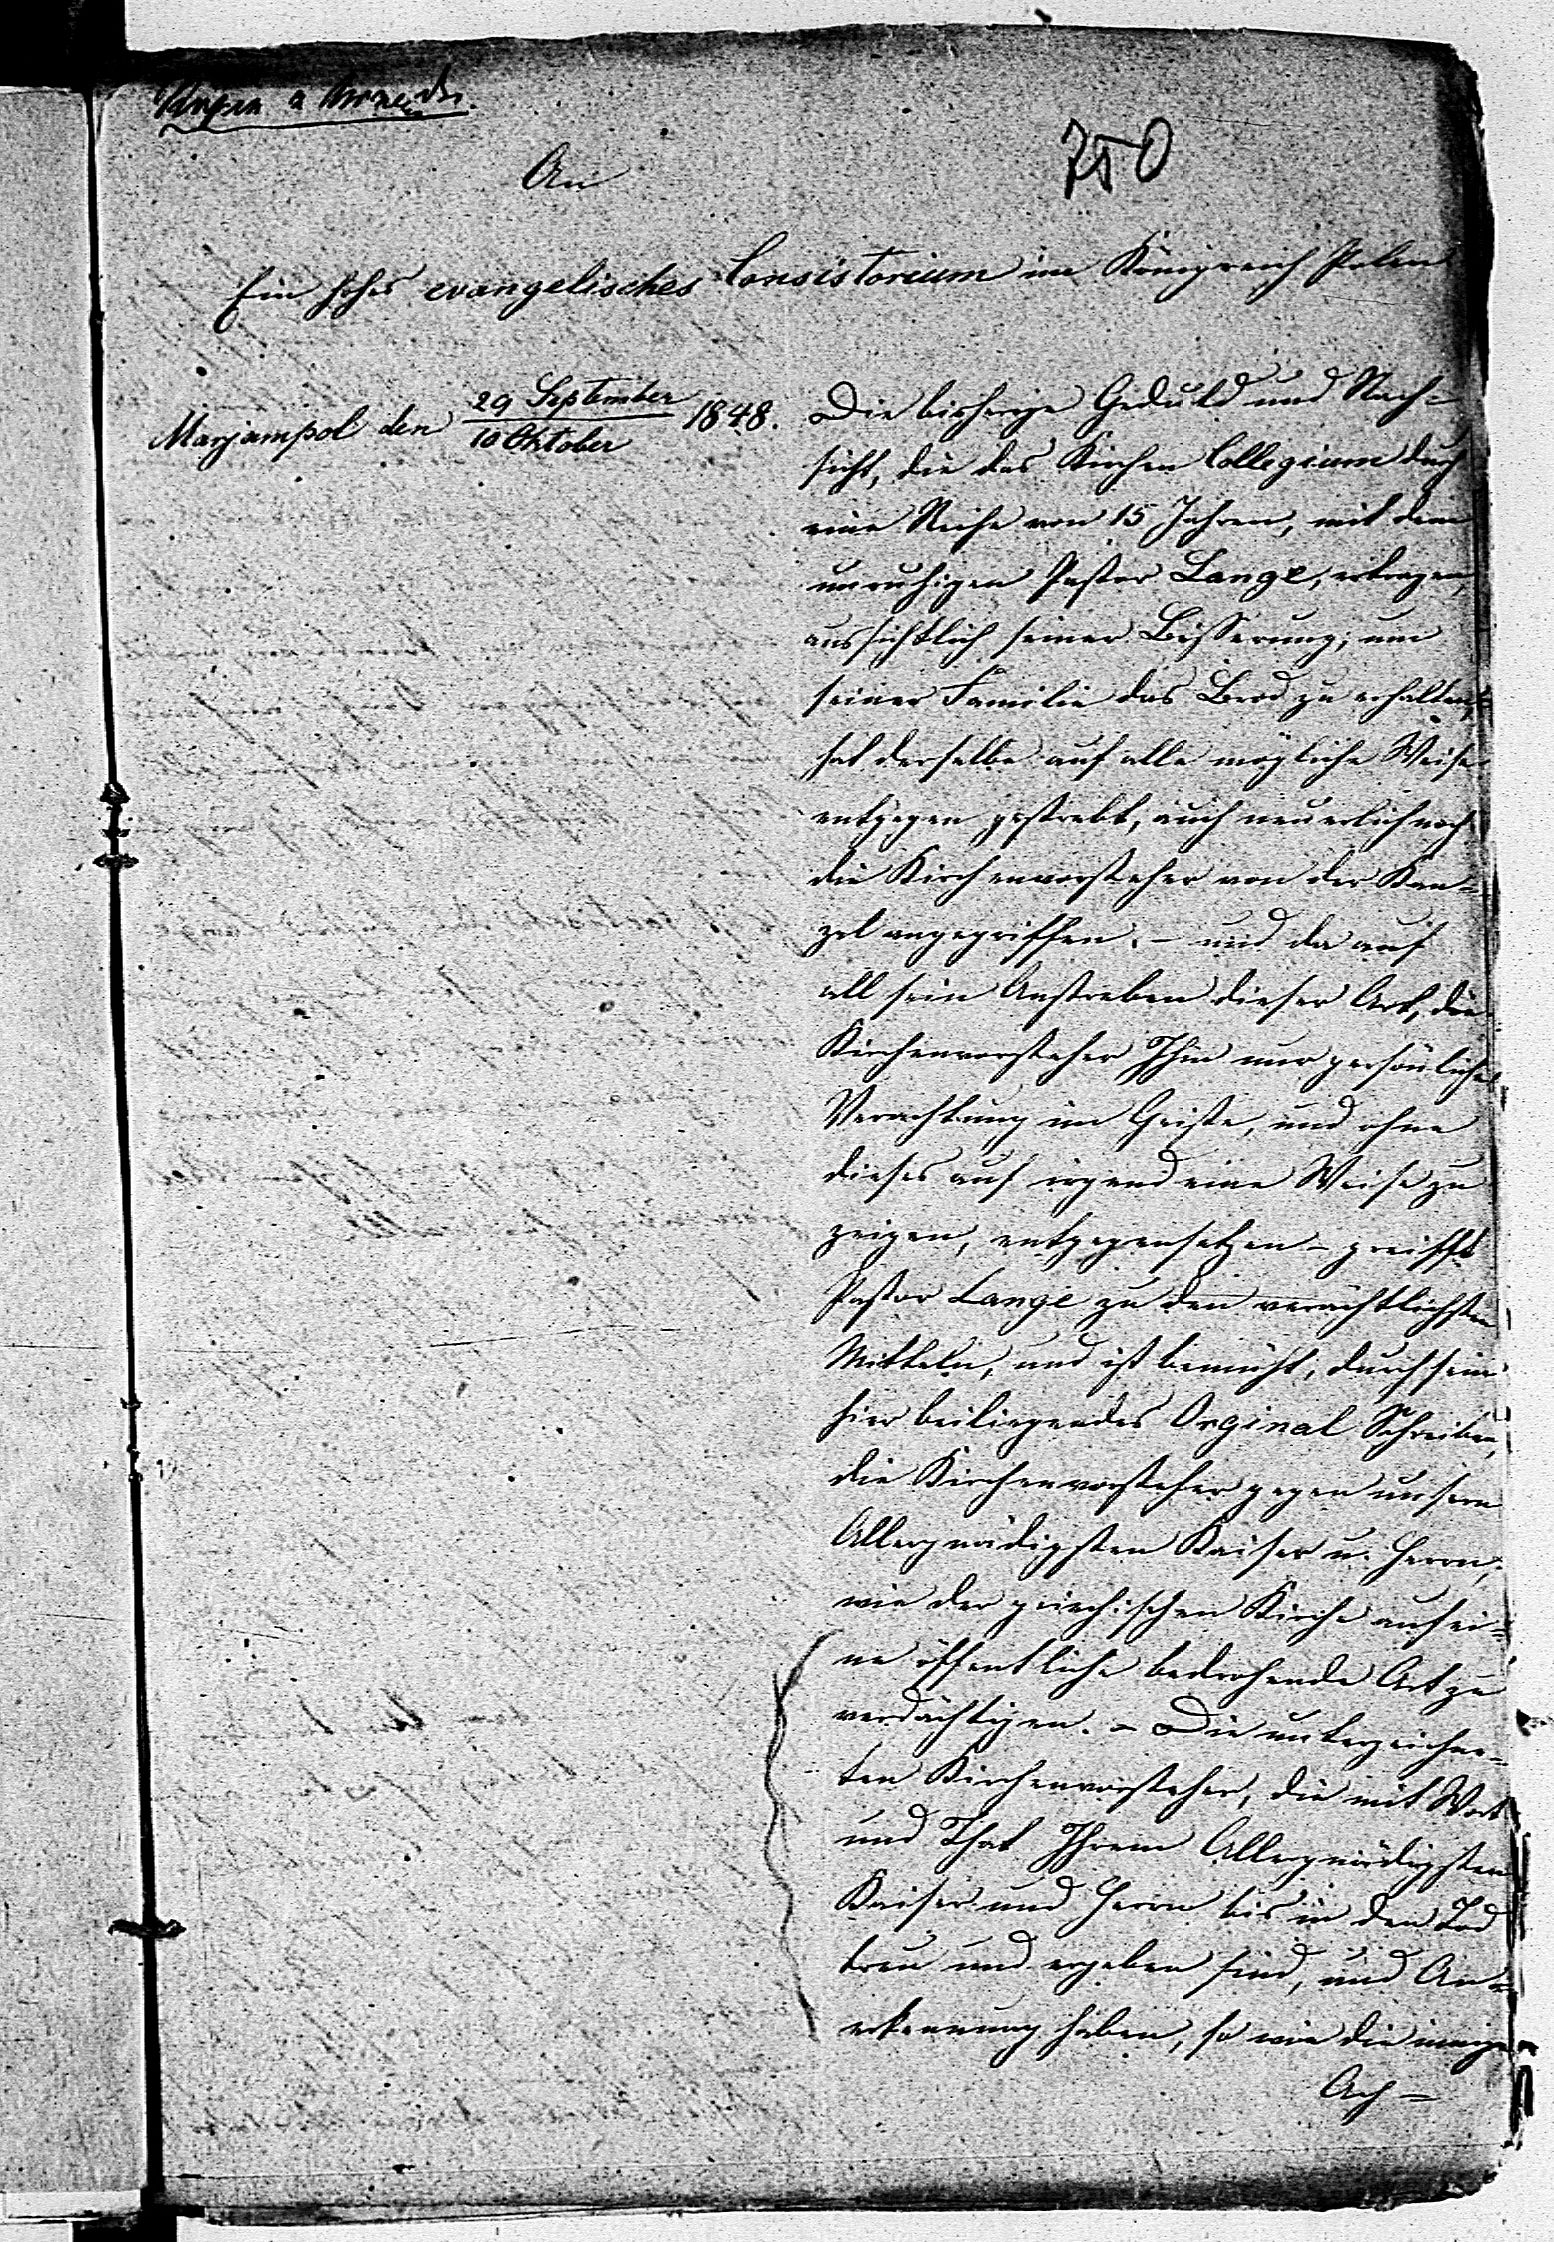 An
750
Ein hohes evangelisches Consistorium im Königreich Polen
Marjampol den 29 September / 10 Oktober 1848.
Die bisherige Geduld und Nach=
sicht, die das Kirchen Collegium durch
eine Reihe von 15 Jahren, mit dem
unruhigen Pastor Lange, ertragen,
aussichtlich seiner Besserung, um
seiner Familie das Brod zu erhalten,
hat derselbe auf alle mögliche Weise
entgegen gestrebt, auch neuerlich noch
die Kirchenvorsteher von der Kan=
zel angegriffen. – und da auf
all sein Anstreben dieser Art, die
Kirchenvorsteher Ihm nur persönliche
Verachtung im Geiste, und ohne
dieses auf irgend eine Weise zu
zeigen, entgegensetzen – greifft
Pastor Lange zu den verächtlichsten
Mitteln, und ist bemüht, durch sein
hier beiliegendes Orginal Schreiben,
die Kirchenvorsteher gegen unsern
Allergnädigsten Kaiser u. Herrn,
wie der griechischen Kirche auf ei=
ne öffentliche bedrohende Art zu
verdächtigen. – Die unterzeichne=
ten Kirchenvorsteher, die mit Wort
und That Ihrem Allergnädigsten
Kaiser und Herrn bis in den Tod
treu und ergeben sind, und An=
erkennung haben, so wie die innige
Ach=